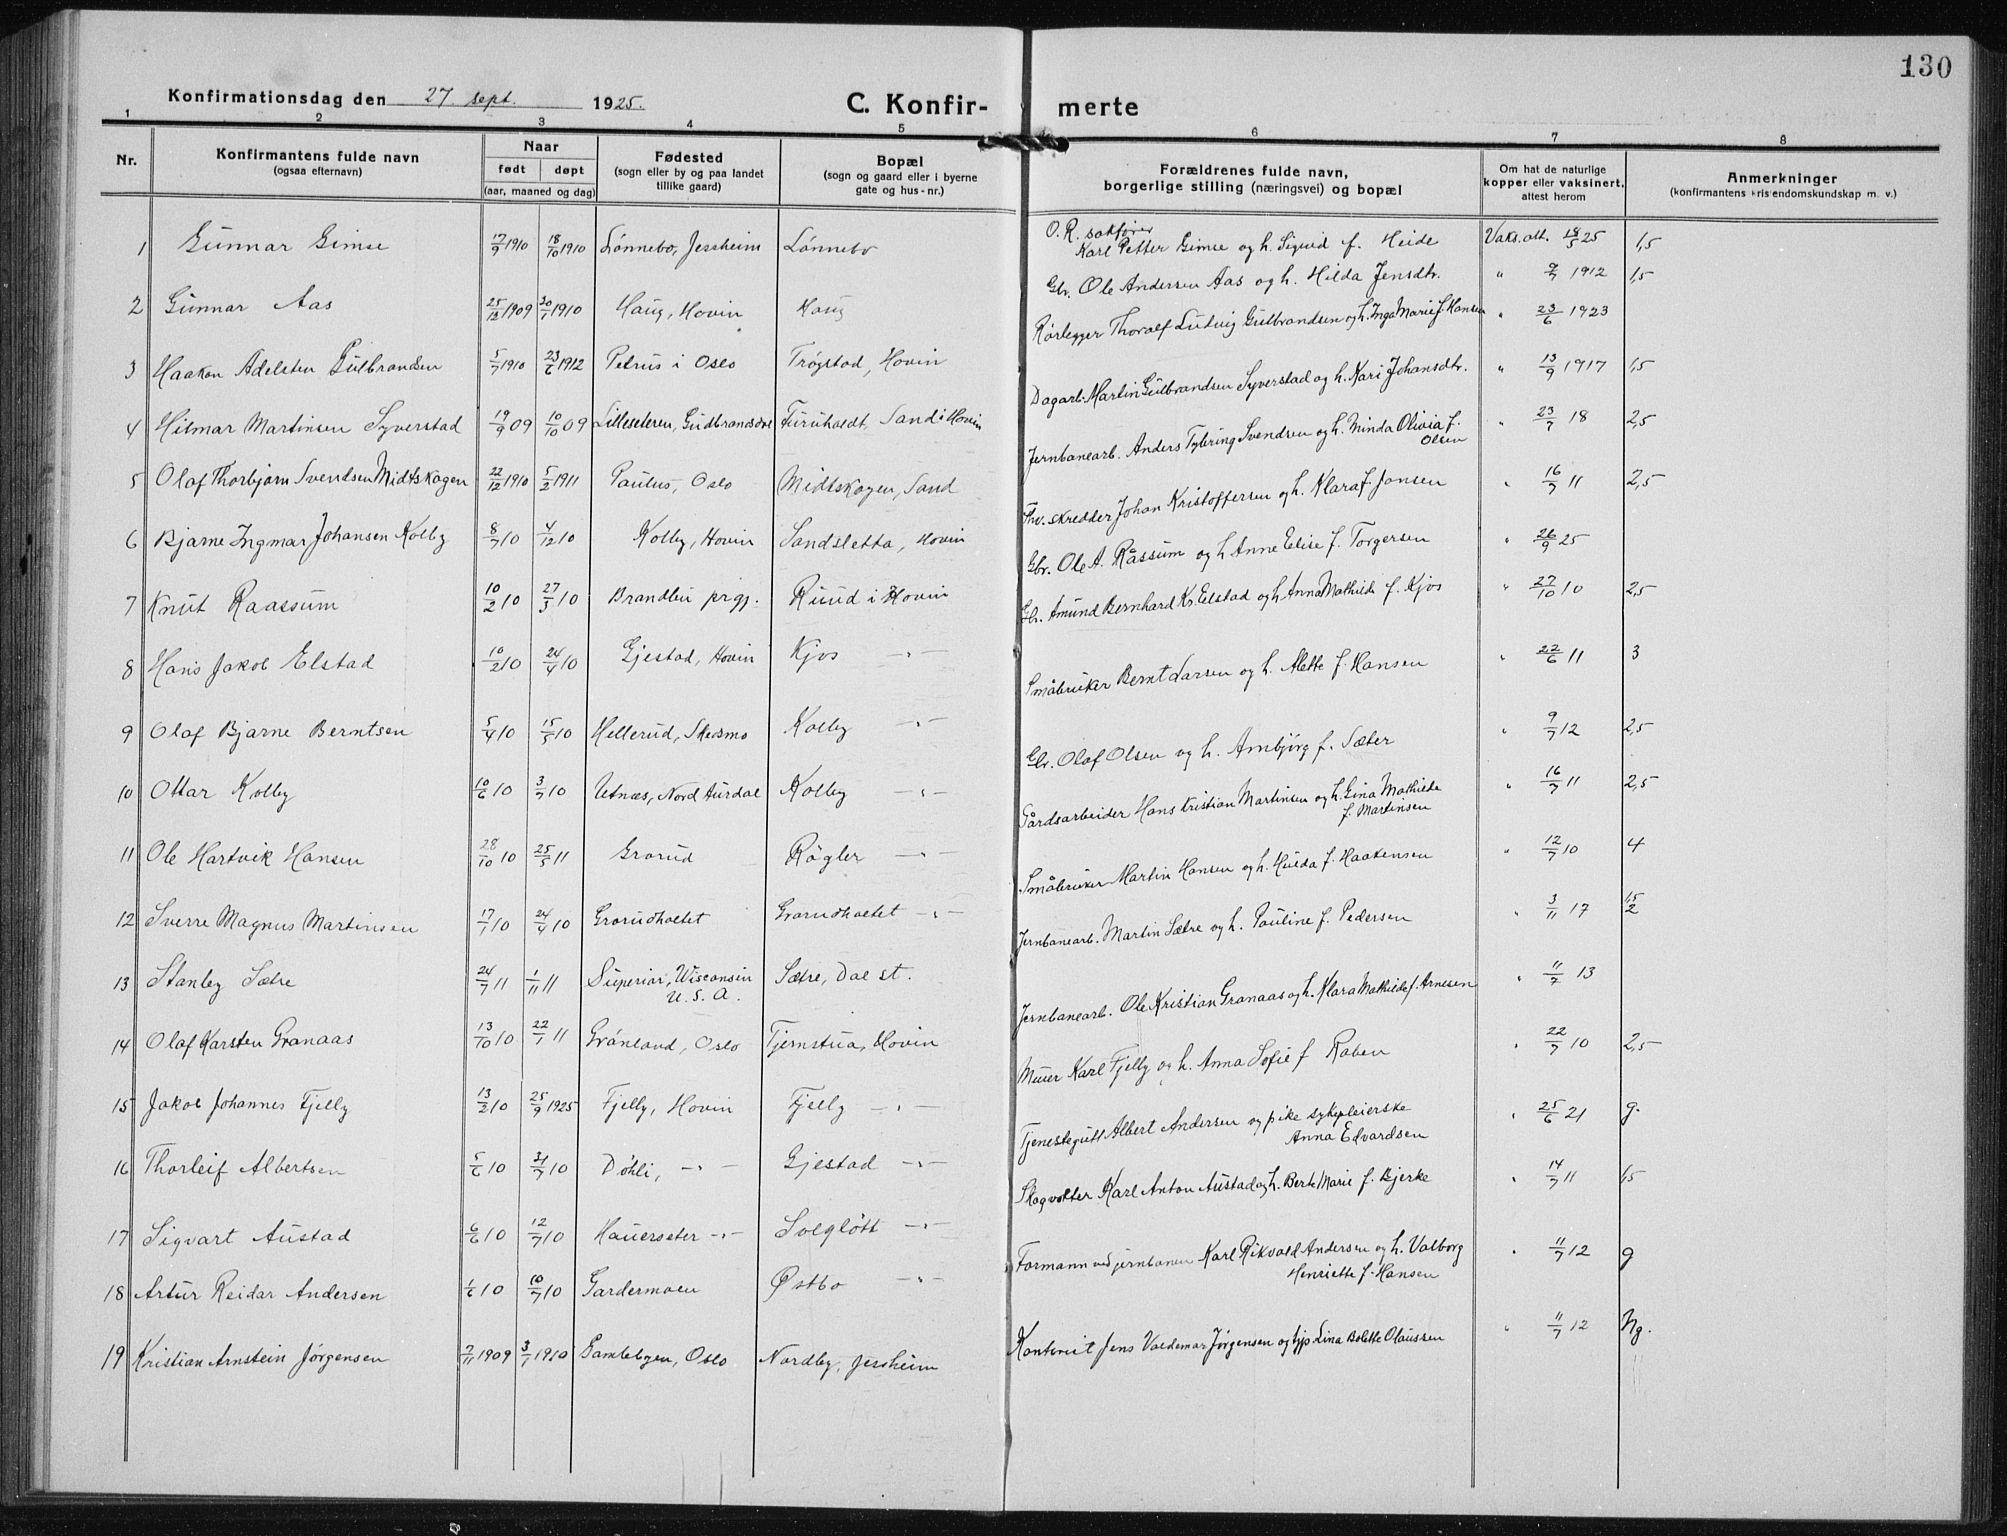 130
Konfirmationsdag den 27. sept. 1925.
C. Konfir- merte
1 2 3 4 5 6 7 8
Nr.
Konfirmantens fulde navn
(ogsaa efternavn)
Naar
født døpt
(aar, maaned og dag)
Fødested
(sogn eller by og paa landet
tillike gaard)
Bopæl
(sogn og gaard eller i byerne
gate og hus-nr.)
Forældrenes fulde navn,
borgerlige stilling (næringsvei) og bopæl
Om hat de naturlige
kopper eller vaksinert,
attest herom
Anmerkninger
(konfirmantens kristendomskundskap m. v.)
1 Gunnar Gimse 17/9 1910 18/10 1910 Lönnebo, Jessheim Lönnebo O. R. sakfører
Karl Petter Gimse og h. Sigrid f. Heide Vaks.att. 18/5 25 1,5
2 Gunnar Aas 25/12 1909 30/1 1910 Haug, Hovin Haug Gbr. Ole Andersen Aas og h. Hilda Jensdtr. " 9/7 1912 1,5
3 Haakon Adelsten Gulbrandsen 5/7 1910 23/6 1912 Petrus i Oslo Trøgstad, Hovin Rørlegger Thoralf Ludvig Gulbrandsen og h. Inga Marie f. Hansen " 23/6 1923
4 Hilmar Martinsen Syverstad 19/9 09 10/10 09 Lilleseteren, Gudbrandsdal Furuholdt, Sand i Hovin Dagarb. Martin Gulbrandsen Syverstad og h. Kari Johansdtr. " 13/9 1917 1,5
5 Olaf Thorbjørn Svendsen Midtskogen 22/12 1910 5/2 1911 Paulus, Oslo Midtskogen, Sand Jernbanearb. Anders Tybring Svendsen og h. Minda Olivia f.
Olsen " 23/7 18 2,5
6 Bjarne Ingmar Johansen Kolby 8/7 10 4/12 10 Kolby, Hovin Sandsletta, Hovin Fhv. skredder Johan Kristoffersen og h. Klara f. Jonsen " 16/7 11 2,5
7 Knut Raassum 10/2 10 27/3 10 Brandbu prgj. Ruud i Hovin Gbr. Ole A. Råssum og h Anne Elise f. Torgersen " 26/9 25
8 Hans Jakob Elstad 10/2 10 24/4 10 Gjestad, Hovin Kjos -"- Gbr. Amund Bernhard Kr. Elstad og h Anna Mathilde f. Kjos " 27/10 10 2,5
9 Olaf Bjarne Berntsen 5/4 10 15/5 10 Hellerud, Skedsmo Kolby -"- Småbruker Bernt Larsen og h. Alette f. Hansen " 22/6 11 3
10 Ottar Kolby 10/6 10 3/7 10 Utnæs, Nord Aurdal Kolby -"- Gbr. Olaf Olsen og h. Arnbjörg f. Sæter " 9/7 12 2,5
11 Ole Hartvik Hansen 28/10 10 25/5 11 Grorud Rögler -"- Gårdsarbeider Hans Kristian Martinsen og h. Gina Mathilde
f. Martinsen " 16/7 11 2,5
12 Sverre Magnus Martinsen 17/1 10 24/4 10 Grorudholtet Grorudholtet -"- Småbruker Martin Hansen og h. Hulda f. Haakensen " 12/7 10 4
13 Stanley Sætre 24/7 11 1/11 11 Superior, Wisconsin
U. S. A. Sætre, Dal st. Jernbanearb. Martin Sætre og h. Pauline f. Pedersen " 3/11 17
14 Olaf Karsten Granaas 13/10 10 22/1 11 Grönland, Oslo Tjernstua, Hovin Jernbanearb. Ole Kristian Granaas og h. Klara Mathilde f. Arnesen " 11/7 13
15 Jakob Johannes Fjelly 13/2 10 25/9 1925 Fjelly, Hovin Fjelly -"- Murer Karl Fjelly og h. Anna Sofie f Raben " 22/7 10 2,5
16 Thorleif Albertsen 5/6 10 31/7 10 Döhli, -"- Gjestad -"- Tjenestegutt Albert Andersen og pike sykepleierske
Anna Edvardsen " 25/6 21 g.
17 Sigvart Austad 6/6 10 12/7 10 Hauerseter -"- Solgløtt -"- Skogvokter Karl Anton Austad og h. Berte Marie f. Bjerke " 14/7 11 1,5
18 Artur Reidar Andersen 1/6 10 10/7 10 Gardermoen Østbo -"- Formann ved jernbanen Karl Rikvald Andersen og h. Valborg
Henriette f. Hansen " 11/7 12 g
19 Kristian Arnstein Jörgensen 2/11 1909 3/1 1910 Gamlebyen, Oslo Nordby, Jessheim Kontorist Jens Valdemar Jörgensen og hjp Lina Bolette Olaussen " 11/7 12 Ng.